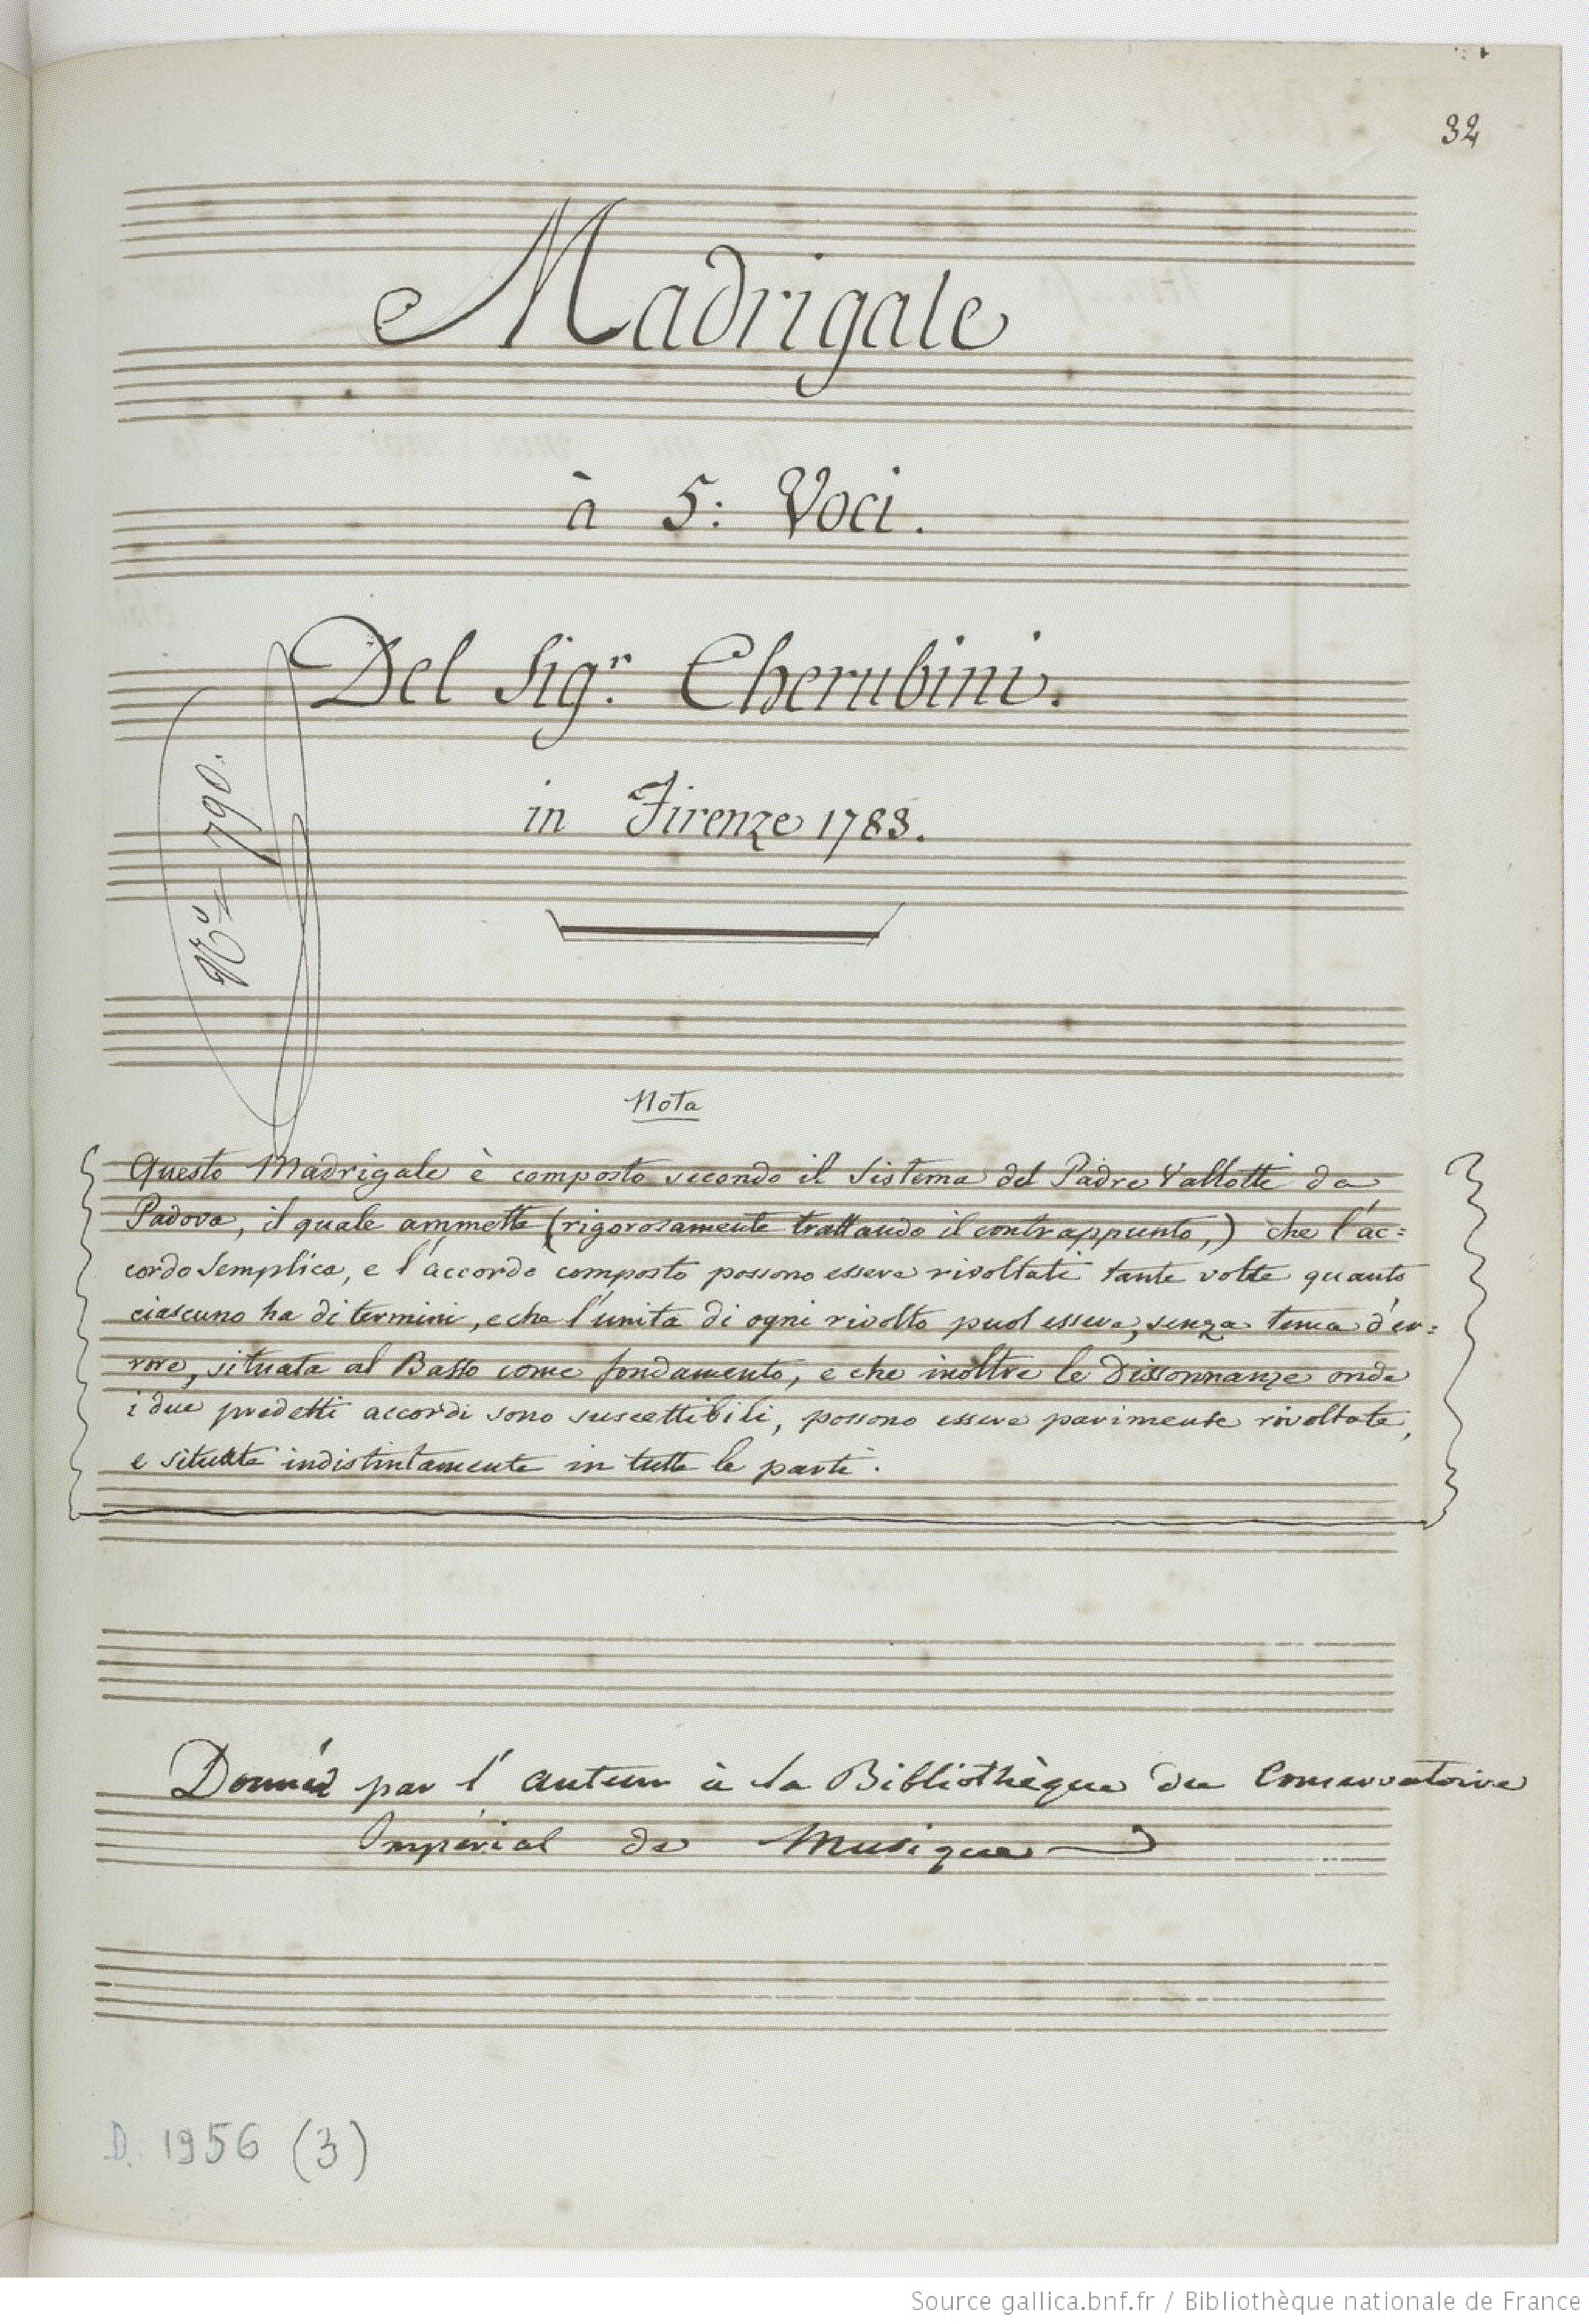 32
Madrigale
à 5: Voci.
Del Sigr. Cherubini.
in Firenze 1783.
No. 790.
Nota
Questo Madrigale è composto secondo il Sistema del Padre Vallotti da
Padova, il quale ammette (rigorosamente trattando il contrappunto,) che l'ac=
cordo Semplice, e l'accordo composto possono essere rivoltati tante volte quanto
ciascuno ha di termini, e che l'unità di ogni rivolto puol essere, senza tema d'er=
rore, situata al Basso come fondamento, e che inoltre le Dissonnanze onde
i due predetti accordi sono suscettibili, possono essere parimente rivoltate,
e situate indistintamente in tutte le parti.
Donnée par l'auteur à la Bibliothèque du Conservatoire
Impérial de Musique
D. 1956 (3)
Source gallica.bnf.fr / Bibliothèque nationale de France